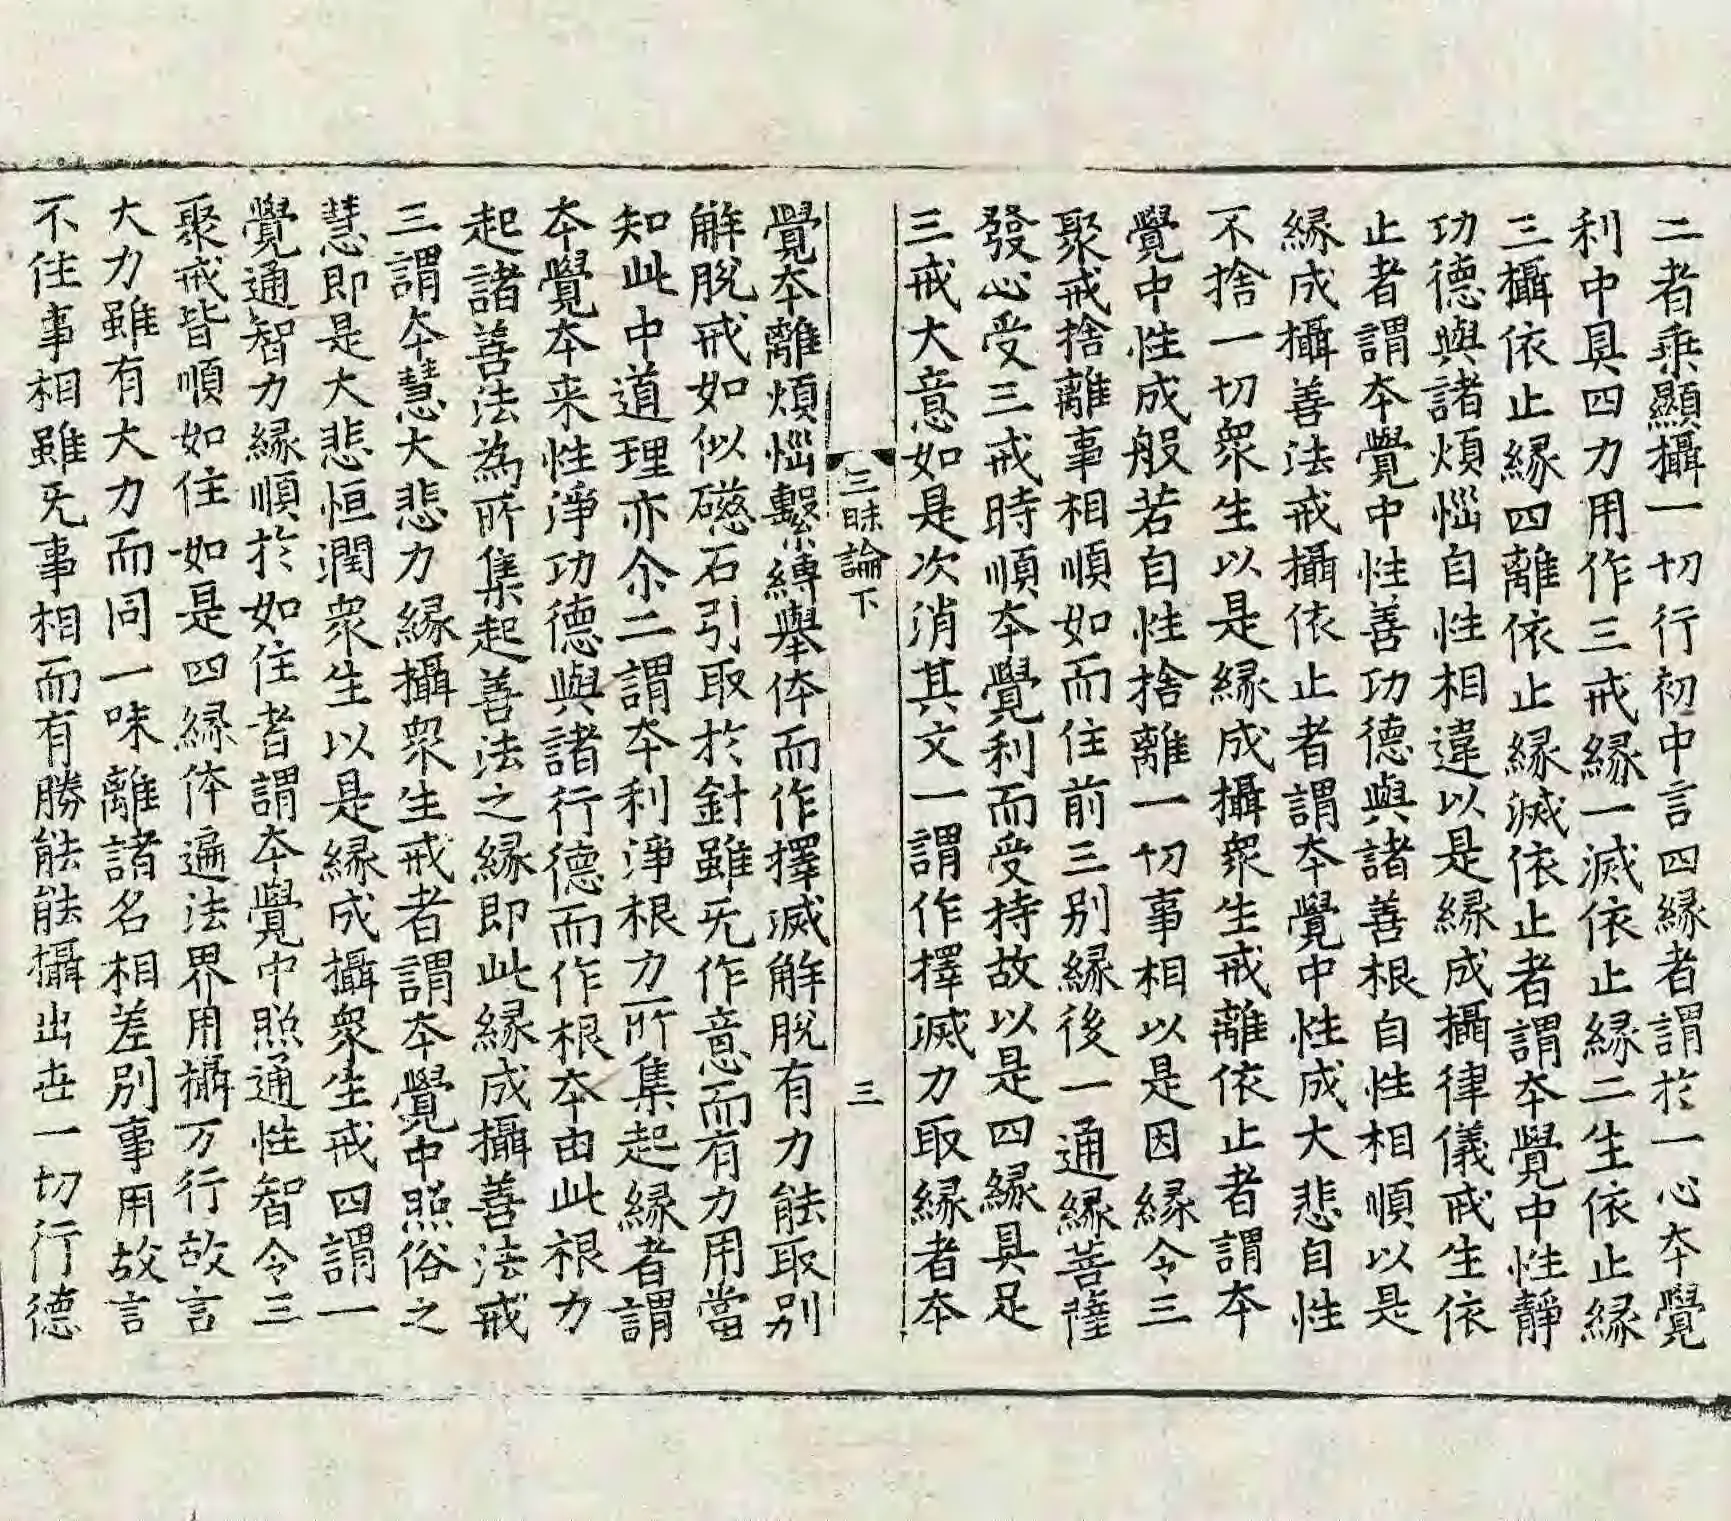 二者乗顯攝一切行初中言四縁者謂於一心夲覺
利中具四力用作三戒縁一滅依止縁二生依止縁
三攝依止縁四離依止縁滅依止者謂夲覺中性靜
功德與諸煩惱自性相違以是縁成攝律儀戒生依
止者謂夲覺中性善功德與諸善根自性相順以是
縁成攝善法戒攝依止者謂夲覺中性成大悲自性
不捨一切衆生以是縁成攝衆生戒離依止者謂夲
覺中性成般若自性捨離一切事相以是因縁令三
聚戒捨離事相順如而住前三別縁後一通縁菩薩
發心受三戒時順夲覺利而受持故以是四縁具足
三戒大意如是次消其文一謂作擇滅力取縁者夲
三昧論下
三
覺夲離煩惱繫縛舉体而作擇滅解脫有力能取別
解脫戒如似磁石引取於針雖无作意而有力用當
知此中道理亦尒二謂夲利淨根力所集起縁者謂
夲覺夲来性淨功德與諸行德而作根夲由此根力
起諸善法為所集起善法之縁即此縁成攝善法戒
三謂夲慧大悲力縁攝衆生戒者謂夲覺中照俗之
慧即是大悲恒潤衆生以是縁成攝衆生戒四謂一
覺通智力縁順於如住者謂夲覺中照通性智令三
聚戒皆順如住如是四縁体遍法界用攝万行故言
大力雖有大力而同一味離諸名相差別事用故言
不住事相雖无事相而有勝能能攝出世一切行德